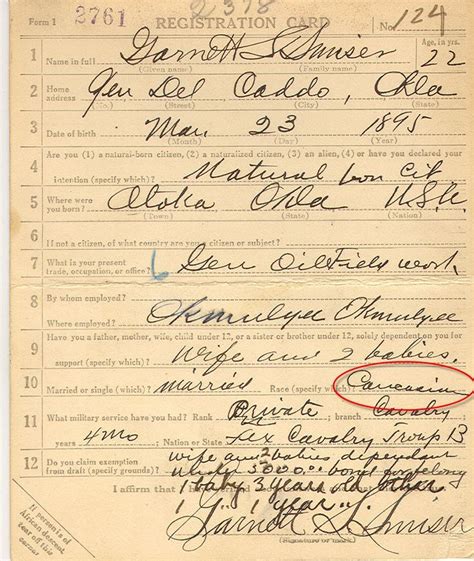 2761 2378
Form 1 REGISTRATION CARD No. 124
1 Name in full Garnett S Smiser Age, in yrs. 22
(Given name) (Family name)
2 Home address Gen Del Caddo, Okla
(No.) (Street) (City) (State)
3 Date of birth Mar. 23 1895
(Month) (Day) (Year)
Are you (1) a natural-born citizen, (2) a naturalized citizen, (3) an alien, (4) or have you declared your
4 intention (specify which)? Natural born Cit
5 Where were you born? Atoka Okla U.S.A.
(Town) (State) (Nation)
6 If not a citizen, of what country are you a citizen or subject?
7 What is your present trade, occupation, or office? 6 Gen Oil Field work
8 By whom employed?
Where employed? Okmulgee Okmulgee
Have you a father, mother, wife, child under 12, or a sister or brother under 12, solely dependent on you for
9 support (specify which)? Wife and 2 babies.
10 Married or single (which)? married Race (specify which)? Caucasian
11 What military service have you had? Rank Private ; branch Cavalry
4 mo ; Nation or State Tex Cavalry Troup B
12 Do you claim exemption from draft (specify grounds)? wife and 2 babies dependant
1 baby 3 years old other
1 1 year
I affirm that I have
Garnett S Smiser
(Signature or mark)
If person is of African descent tear off this corner